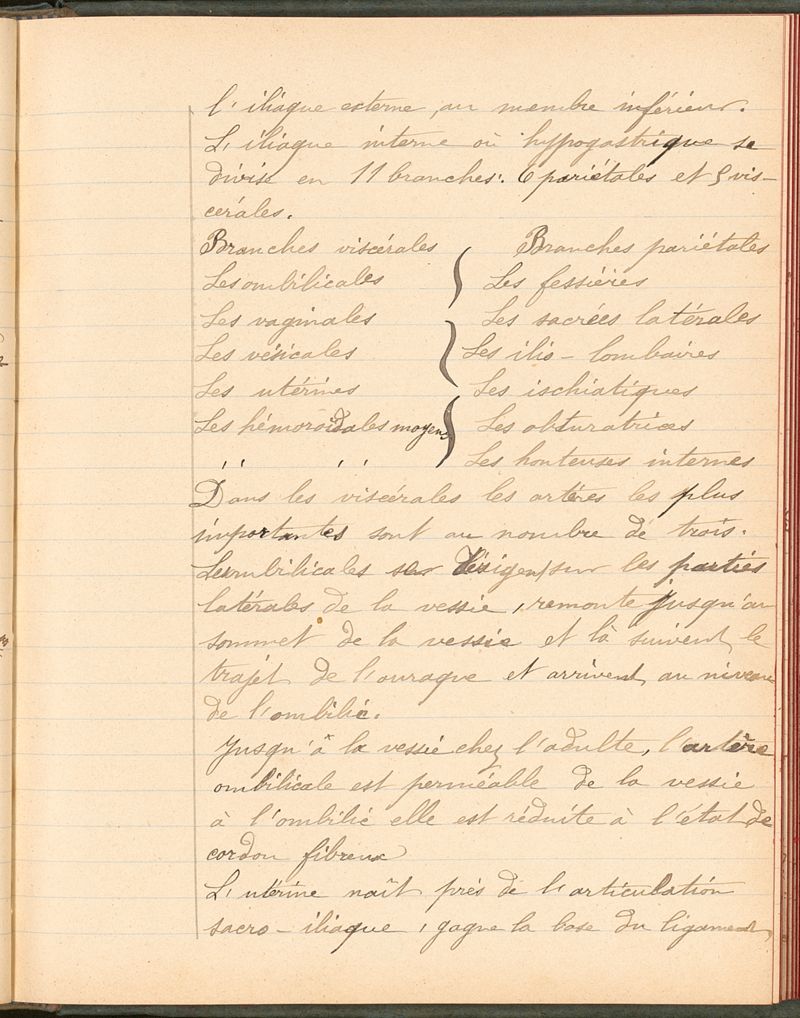 l'iliaque externe, au membre inférieur.
L'iliaque interne où hypogastrique se
divise en 11 branches: 6 pariétales et 5 vis-
cérales.
Branches viscérales } Branches pariétales
Les ombilicales Les fessières
Les vaginales } Les sacrées latérales
Les vésicales Les ilio-lombaires
Les utérines Les ischiatiques
Les hémoroïdales moyens } Les obturatrices
,, ,, Les honteuses internes
Dans les viscérales les artères les plus
importantes sont au nombre de trois.
Les umbilicales se dirigent sur les parties
latérales de la vessie, remonte jusqu'au
sommet de la vessie et là suivent le
trajet de l'ouraque et arrivent au niveau
de l'ombilic.
Jusqu'à la vessie chez l'adulte, l'artère
ombilicale est perméable de la vessie
à l'ombilic elle est réduite à l'état de
cordon fibreux
L'utérine naît près de l'articulation
sacro-iliaque, gagne la base du ligament